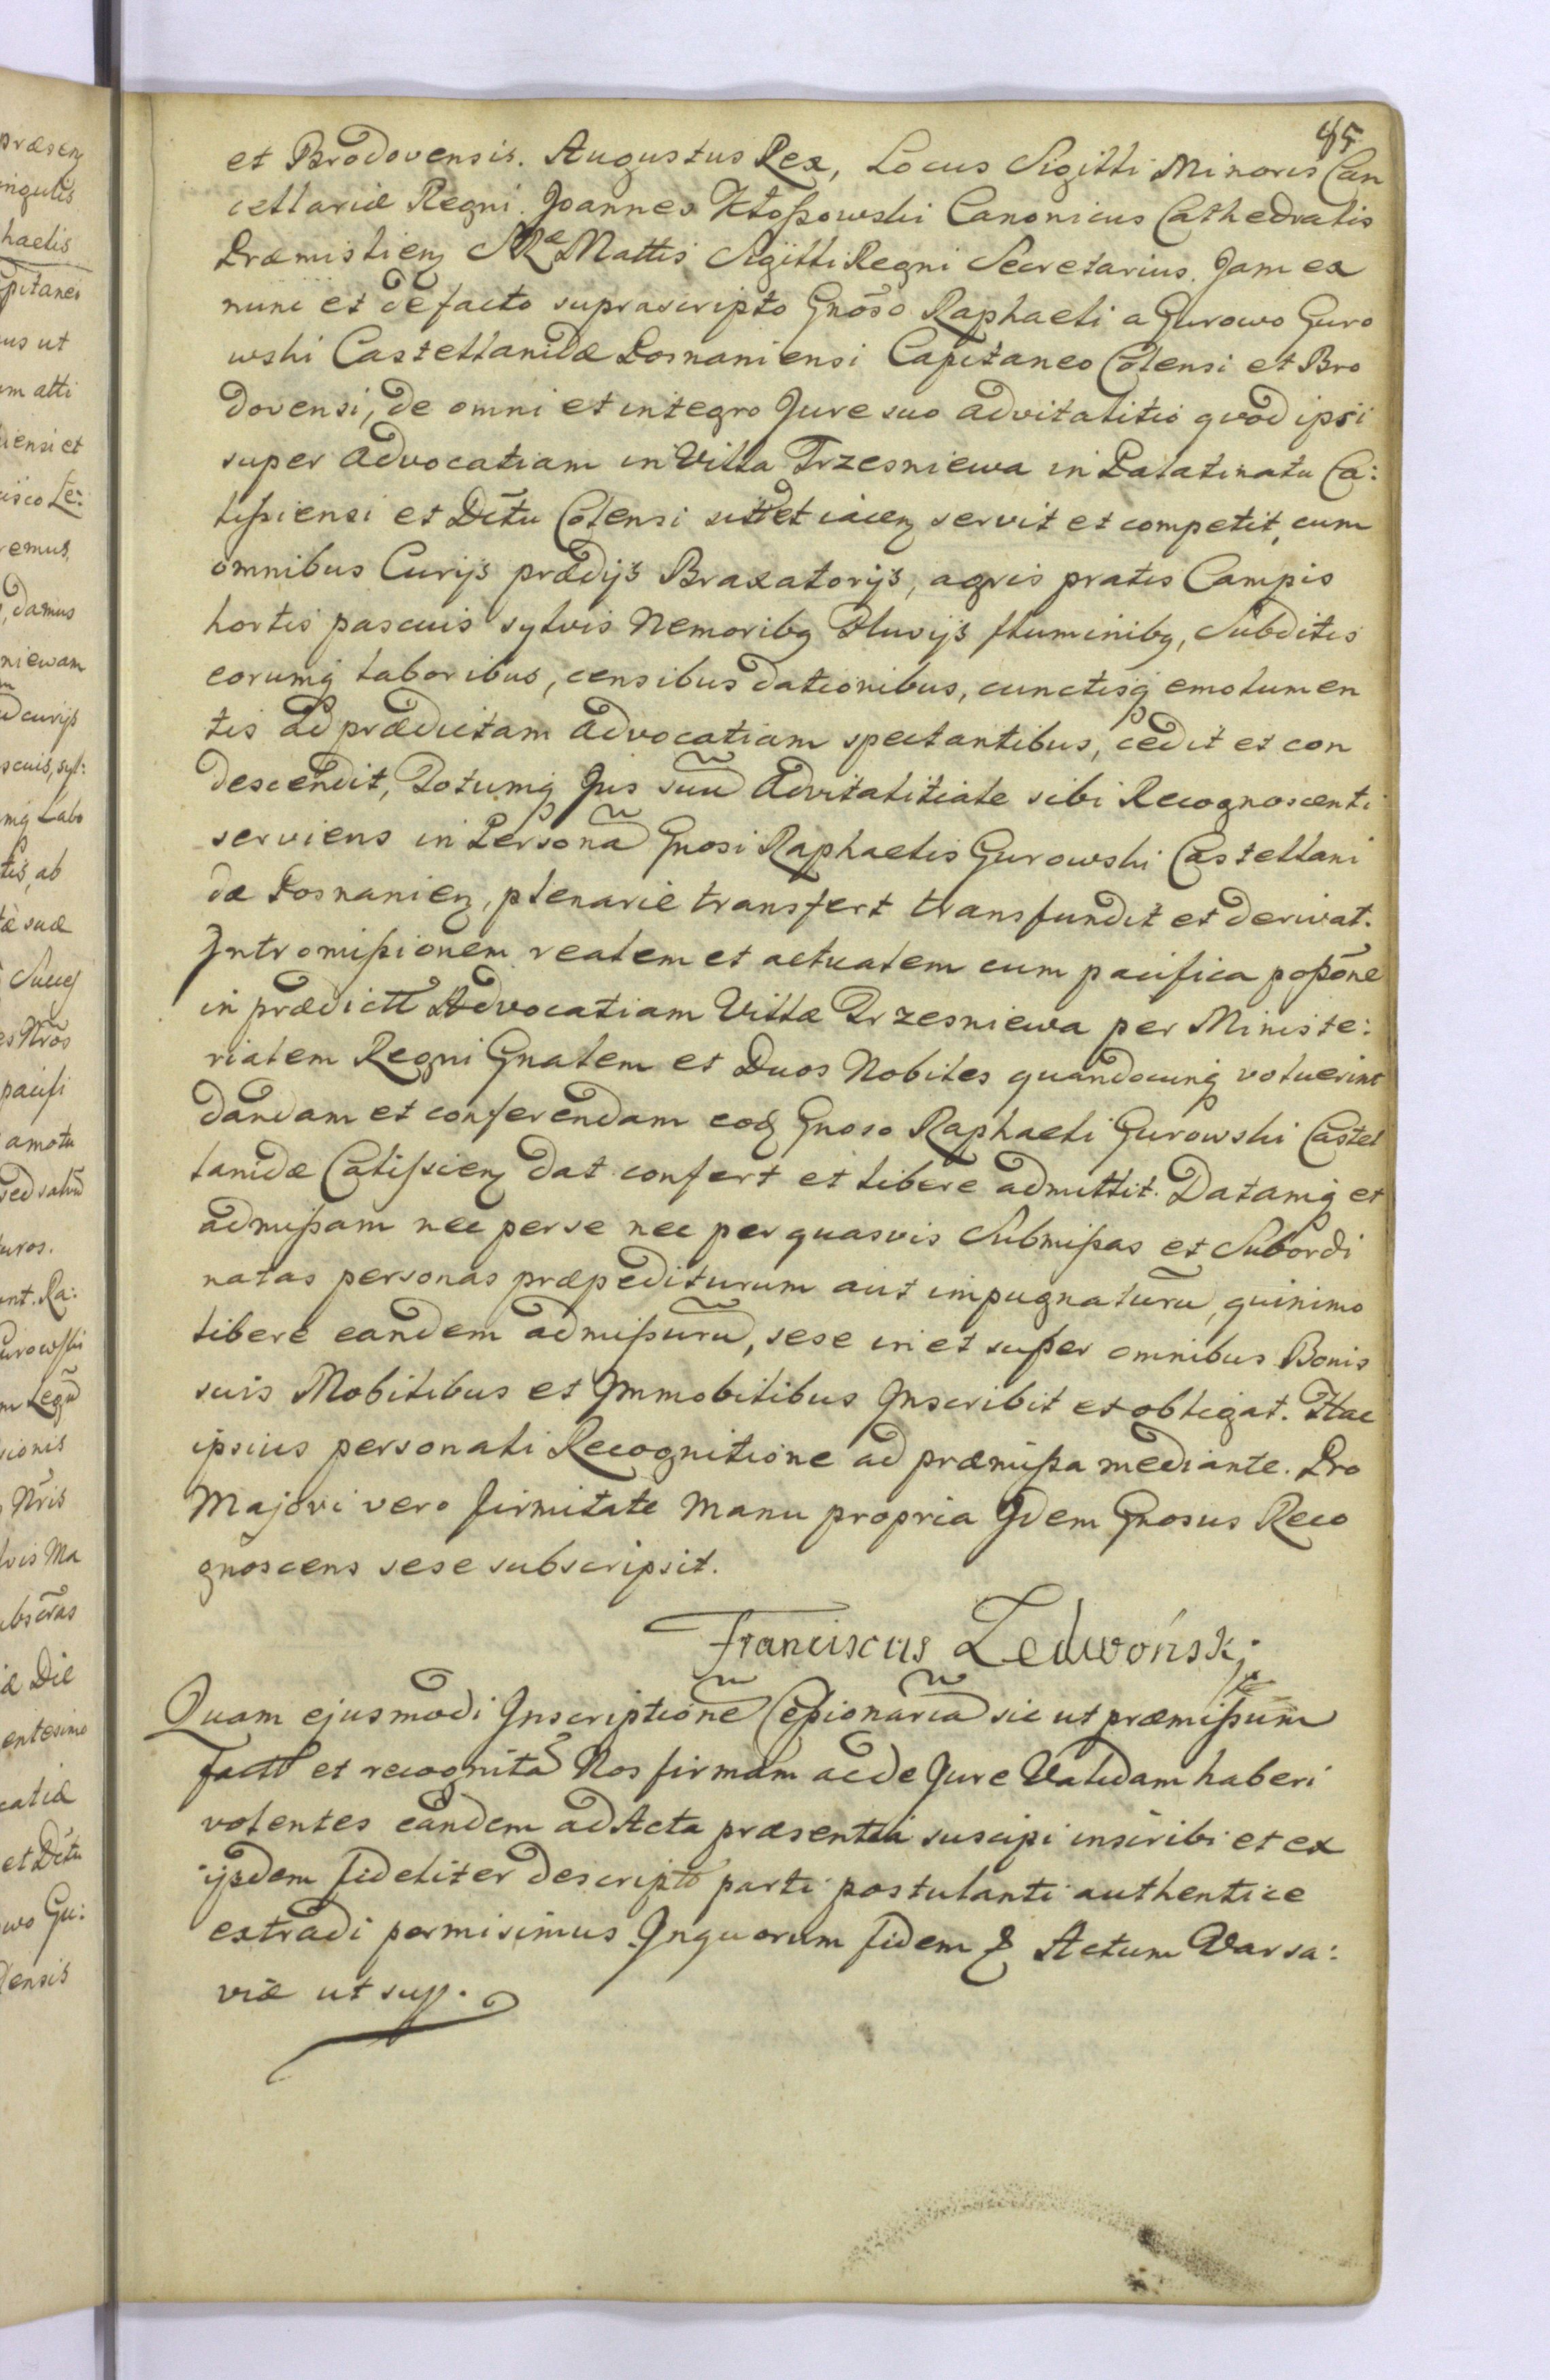 45
et Brodovensis. Augustus Rex, Locus Sigilli Minoris Can
cellariæ Regni. Joannes Kłoßowski Canonicus Cathedralis
Præmislien SRæ Mattis Sigilli Regni Secretarius. Jam ex
nunc et de facto suprascripto Gnõso Raphaeli a Gurowo Guro
wski Castellanidæ Posnaniensi Capitaneo Colensi et Bro
dovensi, de omni et integro Jure suo advitalitio quod ipsi
super advocatiam in Villa Trzesniewa in Palatinatu Ca:
lißiensi et Dctũ Colensi sit et iacen servit et competit, cum
omnibus Curijs prædijs Braxatorijs, agris pratis Campis
hortis pascuis sylvis Nemoribq Fluvijs fluminibq, Subditis
eorumq laboribus, censibus dationibus, cunctisq emolumen
tis ad prædictam advocatiam spectantibus, cedit et con
descendit, Totumq Jus suũ Advitalitiale sibi Recognoscenti
serviens in Personã Gnosi Raphaelis Gurowski Castellani
dæ Posnanien, plenarie transfert transfundit et derivat.
Intromißionem realem et actualem cum pacifica poßõne
in prædictã Advocatiam Villæ Trzesniewa per Ministe:
rialem Regni Gnalem et Duos Nobiles quandocunq voluerint
dandam et conferendam eod Gnoso Raphaeli Gurowski Castel
lanidæ Calißien dat confert et libere admittit. Datamq et
admißam nec per se nec per quasvis Submißas et Subordi
natas personas præpediturum aut impugnaturũ, quinimo
libere eandem admißurũ, sese in et super omnibus Bonis
suis Mobilibus et Immobilibus Inscribit et obligat. Hac
ipsius personali Recognitione ad præmißa mediante. Pro
Majori vero firmitate Manu propria Idem Gnosus Reco
gnoscens sese subscripsit.
Franciscus Ledwoński
Quam ejusmodi Inscriptionẽ Ceßionariã sic ut præmißum
factã et recognitã Nos firmam ac de Jure Validam haberi
volentes eandem ad Acta præsentia suscipi inscribi et ex
ijsdem fideliter descriptã parti postulanti authentice
extradi permisimus Inquorum fidem & Actum Varsa:
viæ ut sup.